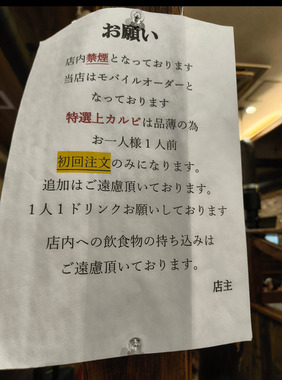 お願い
店内禁煙となっております
当店はモバイルオーダーと
なっております
特選上カルビは品薄の為
お一人様1人前
初回注文のみになります。
追加はご遠慮頂いております。
1人1ドリンクお願いしております
店内への飲食物の持ち込みは
ご遠慮頂いております。
店主